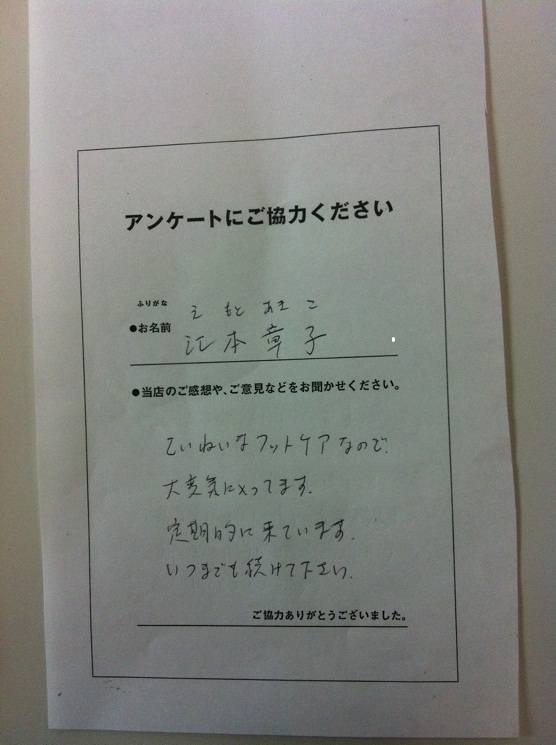 アンケートにご協力ください
ふりがな えもと あきこ
●お名前 江本章子
●当店のご感想や、ご意見などをお聞かせください。
ていねいなフットケアなので、
大変気に入ってます。
定期的に来ています。
いつまでも続けて下さい。
ご協力ありがとうございました。